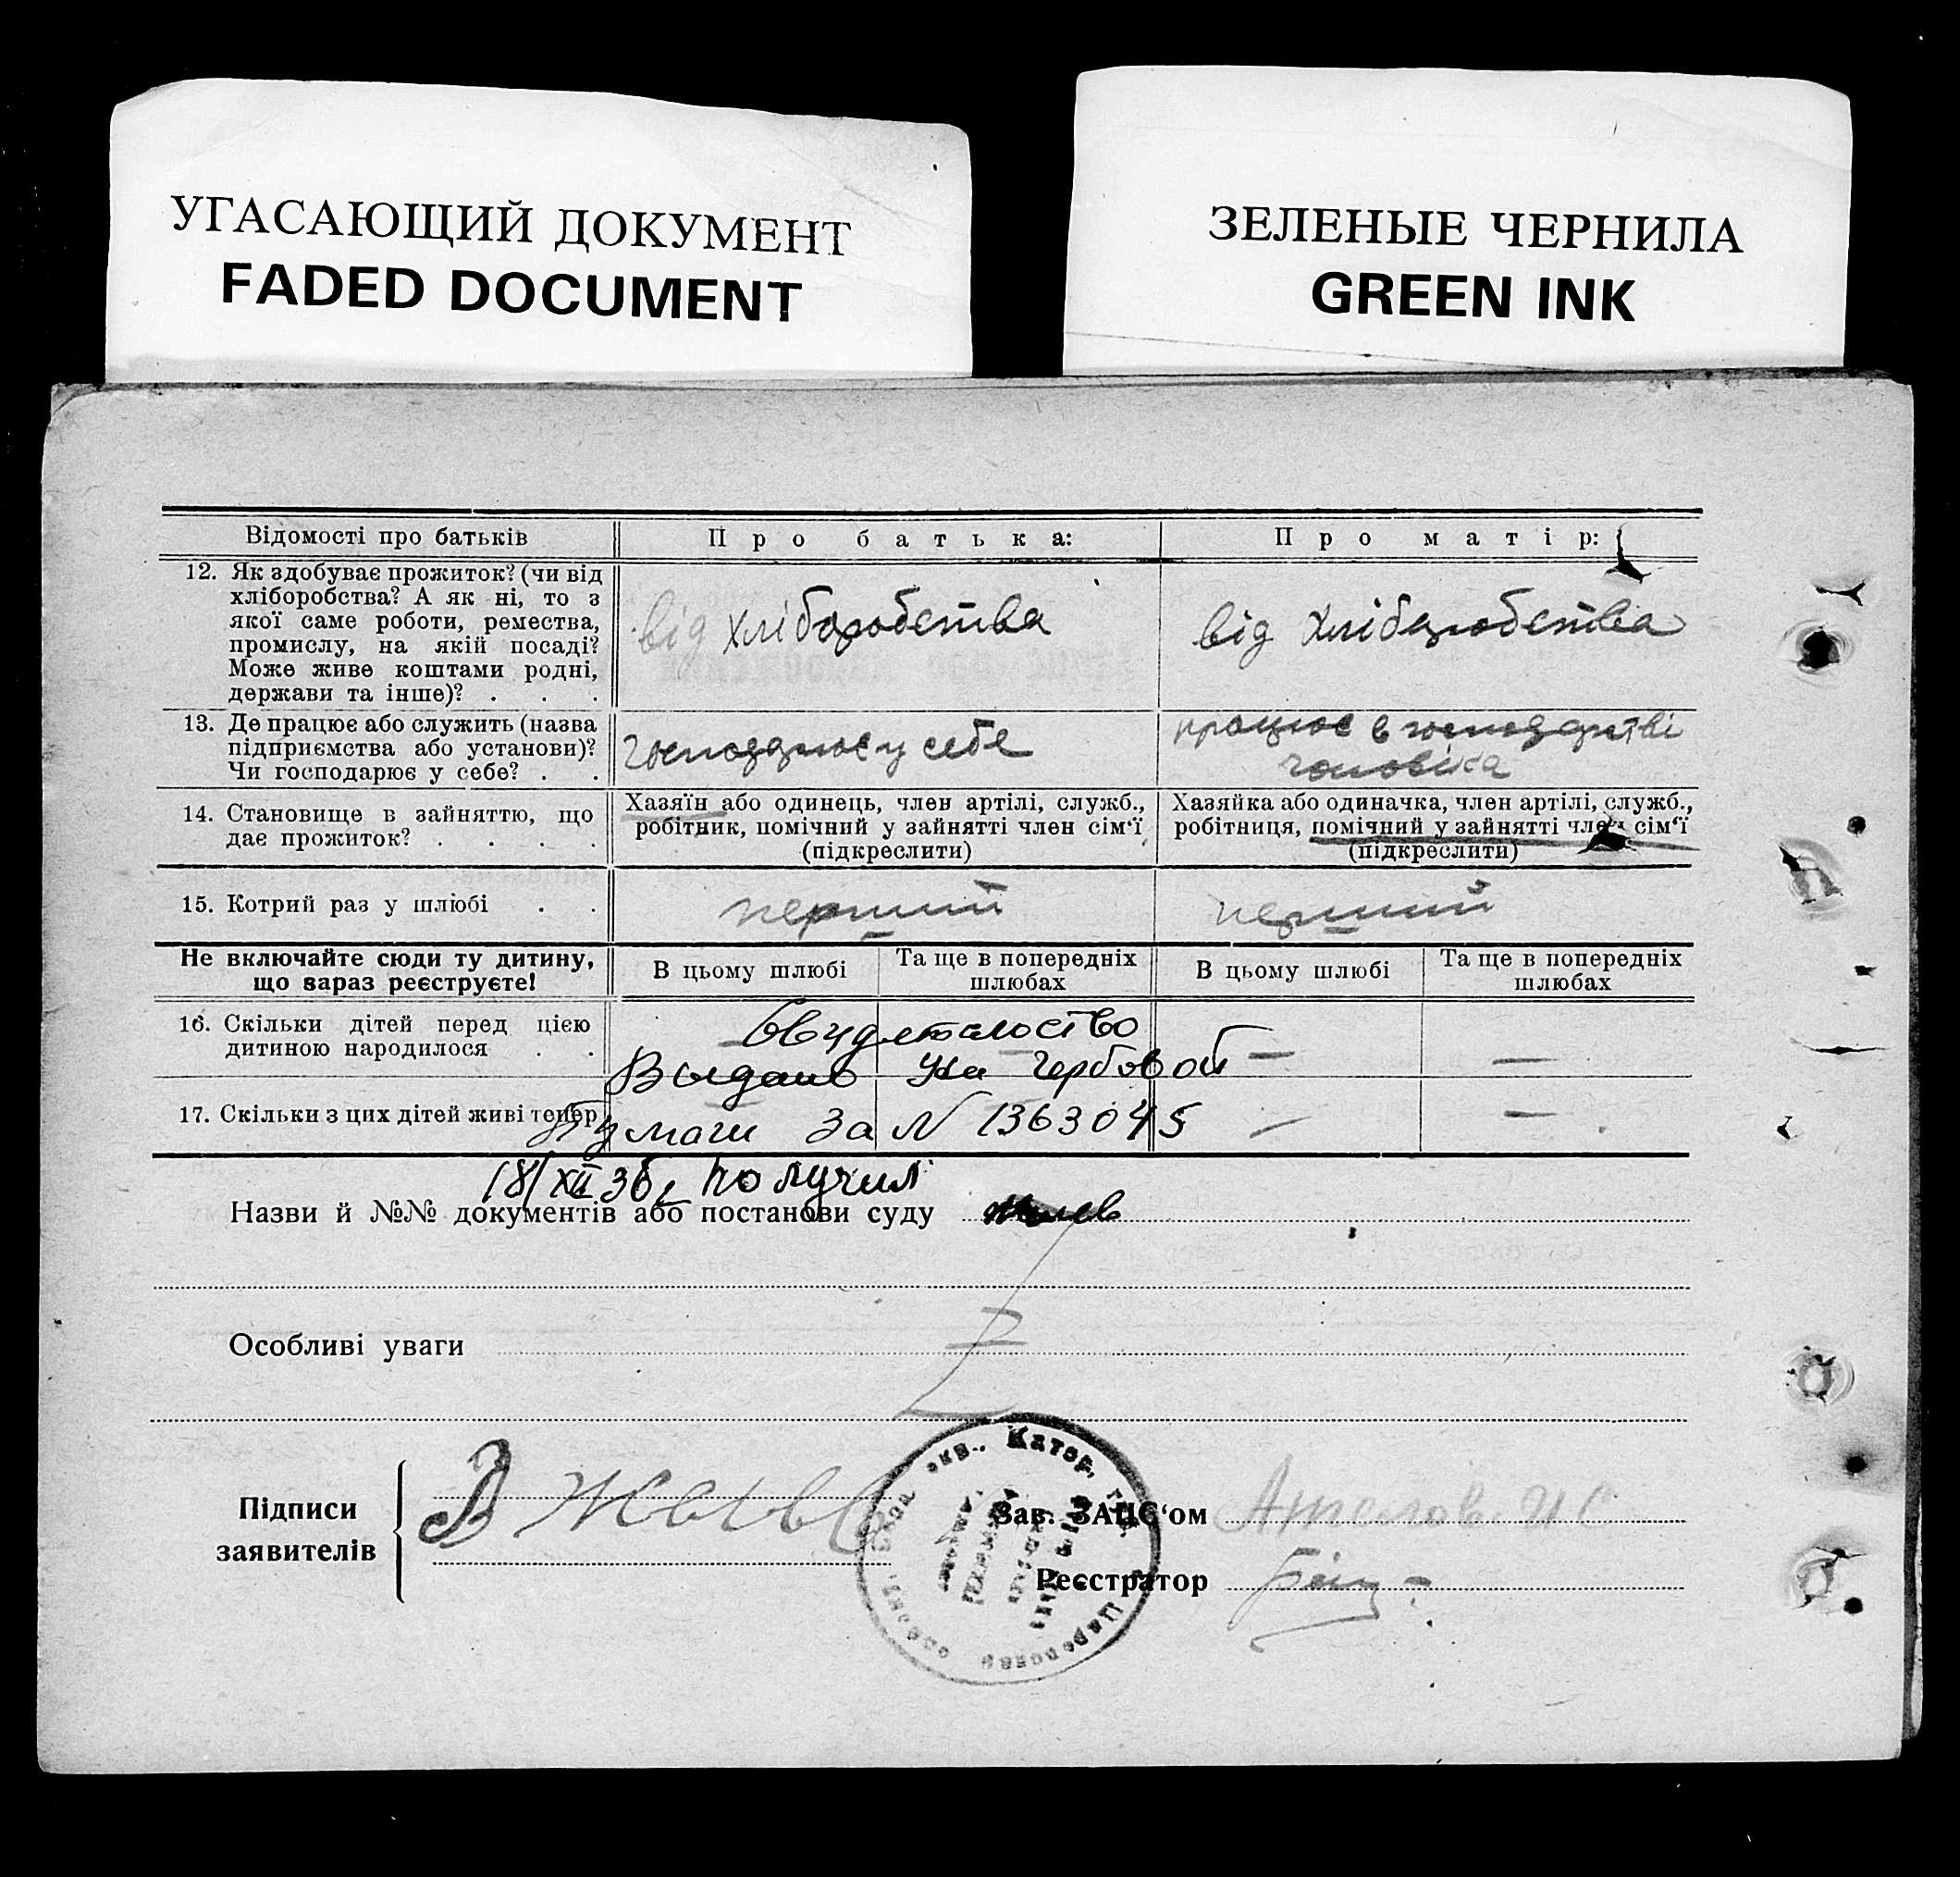 УГАСАЮЩИЙ ДОКУМЕНТ
FADED DOCUMENT
ЗЕЛЕНЫЕ ЧЕРНИЛА
GREEN INK
Відомості про батьків
Про батька:
Про матір:
12. Як здобуває прожиток? (чи від
хліборобства? А як ні, то з
якої саме роботи, ремества,
промислу, на якій посаді?
Може живе коштами родні,
держави та інше)? . . .
від хліборобства
від хліборобства
13. Де працює або служить (назва
підприємства або установи)?
Чи господарює у себе? . .
господарює у себе
працює в господарстві
чоловіка
14. Становище в зайняттю, що
дає прожиток? . . . .
Хазяїн або одинець, член артілі, служб.,
робітник, помічний у зайнятті член сім‘ї
(підкреслити)
Хазяйка або одиначка, член артілі, служб.,
робітниця, помічний у зайнятті член сім‘ї
(підкреслити)
15. Котрий раз у шлюбі . .
перший
перший
Не включайте сюди ту дитину,
що зараз реєструєте!
В цьому шлюбі
Та ще в попередніх
шлюбах
В цьому шлюбі
Та ще в попередніх
шлюбах
16. Скільки дітей перед цією
дитиною народилося . .
—
—
17. Скільки з цих дітей живі тепер
—
—
Свидетельство
Выдано на гербовой
бумаги за N 1363045
18/XII 36 г получил
Назви й №№ документів або постанови суду
Особливі уваги
Підписи
заявителів
В
Катор.
Зав. ЗАЦС‘ом
Реєстратор